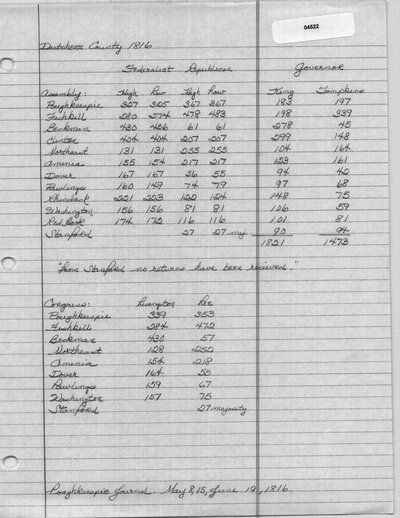 04522
Dutchess County 1816
Federalist Republican Governor
Assembly: High Low High Low King Tompkins
Poughkeepsie 327 325 367 367 183 197
Fishkill 280 274 478 483 198 339
Beekman 430 426 61 61 278 45
Clinton 404 404 207 207 299 148
Northeast 131 131 255 255 104 164
Amenia 155 154 217 217 123 161
Dover 167 167 56 55 94 42
Pawlings 160 149 74 79 97 68
Rhinebeck 221 223 122 124 148 75
Washington 156 156 81 81 106 59
Red Hook 174 172 116 116 101 81
Stanford 27 27 maj. 90 94
1821 1473
"From Stanford no returns have been received."
Congress: Livingston Lee
Poughkeepsie 339 353
Fishkill 284 472
Beekman 430 57
Northeast 128 252
Amenia 154 218
Dover 164 55
Pawlings 159 67
Washington 157 75
Stanford 27 majority
Poughkeepsie Journal. May 8, 15, June 19, 1816.